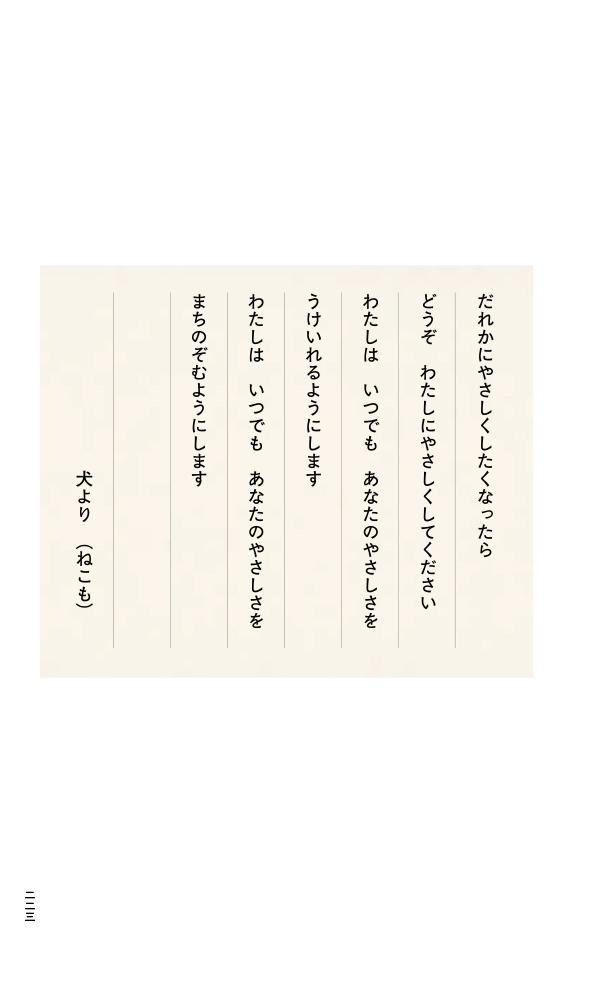 だれかにやさしくしたくなったら
どうぞ　わたしにやさしくしてください
わたしは　いつでも　あなたのやさしさを
うけいれるようにします
わたしは　いつでも　あなたのやさしさを
まちのぞむようにします
犬より　（ねこも）